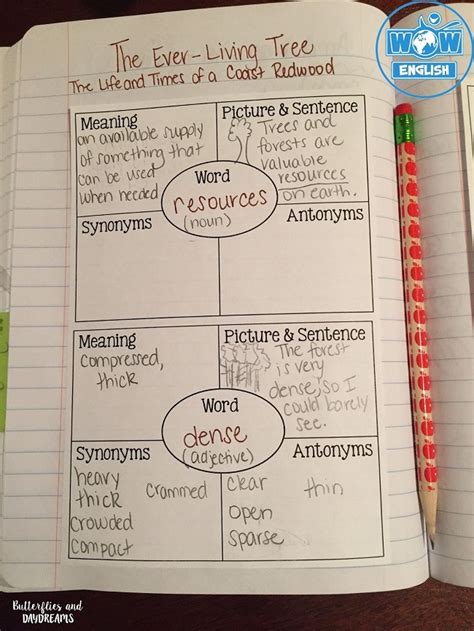 WOW
ENGLISH
The Ever-Living Tree
The Life and Times of a Coast Redwood
Meaning
an available supply
of something that
can be used
when needed
Picture & Sentence
Trees and
forests are
valuable
resources
on earth.
Word
resources
(noun)
Synonyms
Antonyms
Meaning
compressed,
thick
Picture & Sentence
The forest
is very
dense, so I
could barely
see.
Word
dense
(adjective)
Synonyms
heavy
thick
crammed
crowded
compact
Antonyms
clear
thin
open
sparse
Butterflies and
DAYDREAMS